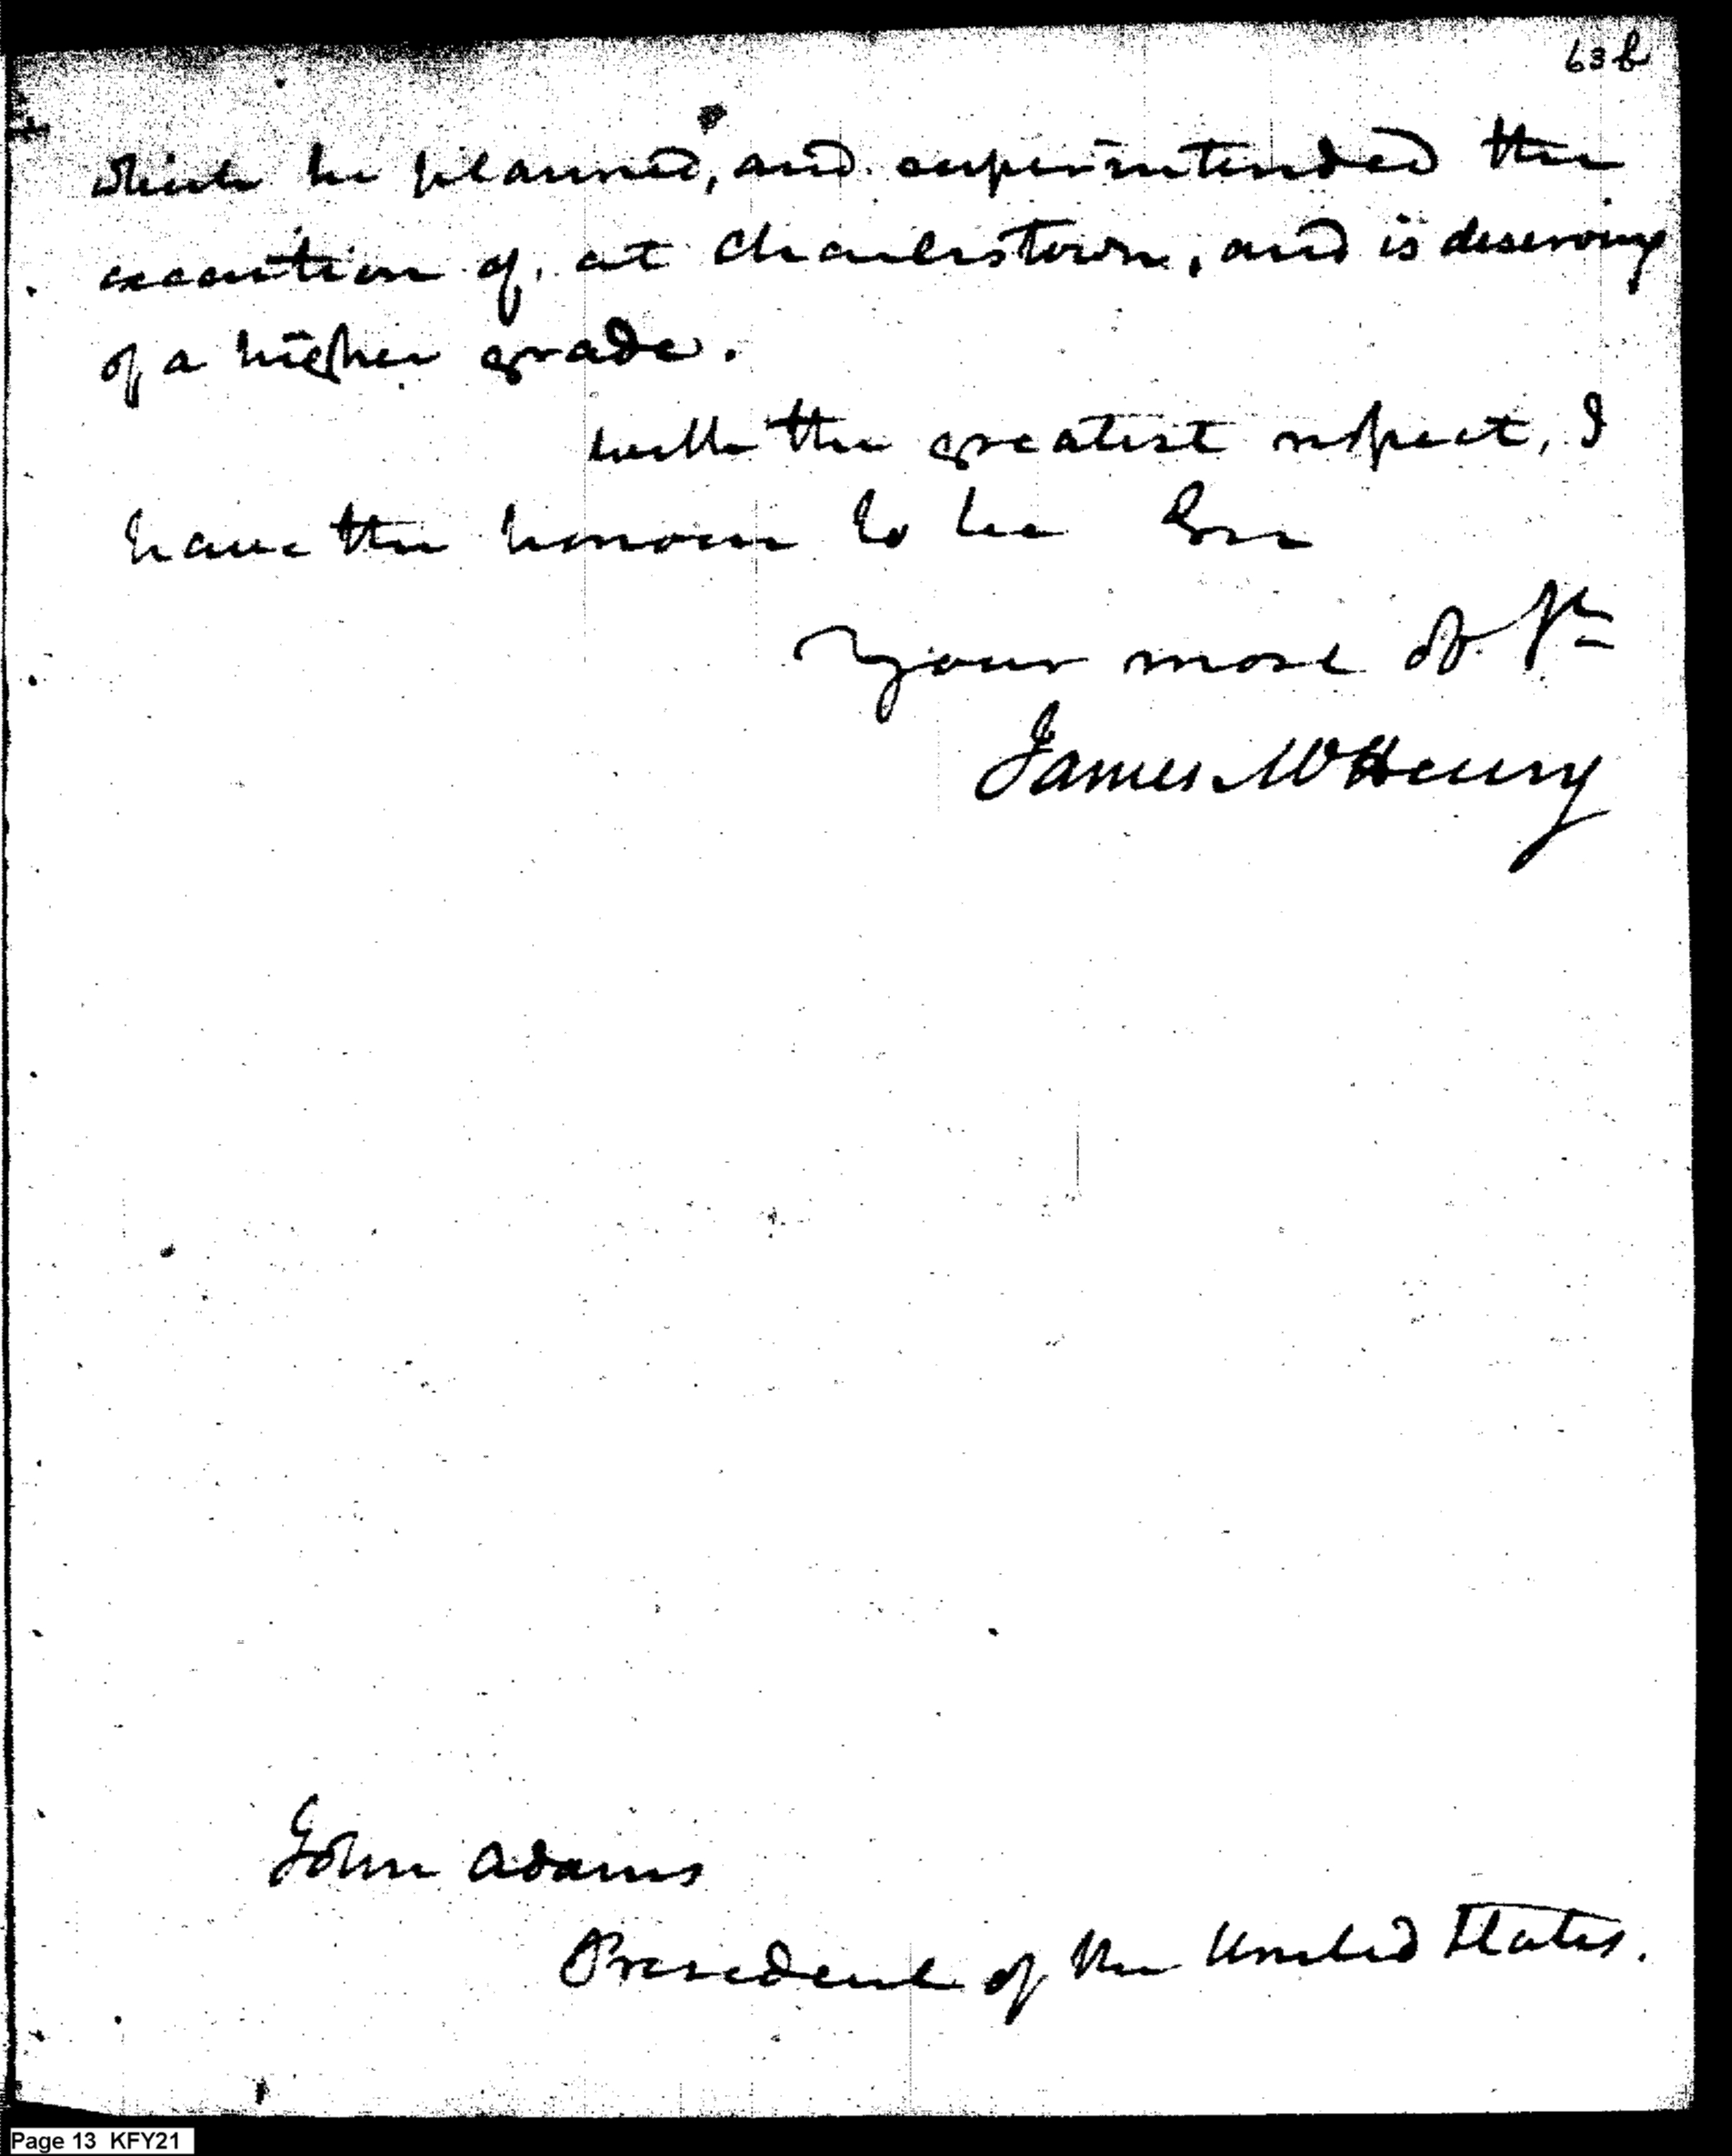 63b
which he planned, and superintended the
execution of, at Charlestown, and is deserving
of a higher grade.
with the greatest respect, I
have the honour to be Sir
Your most ob. St
James McHenry
John Adams
President of the United States.
Page 13 KFY21